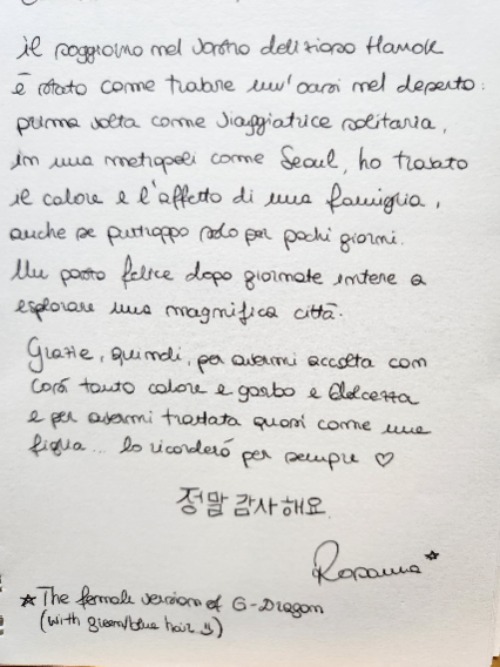 il soggiorno nel vostro delizioso Hanok
è stato come trovare un'oasi nel deserto:
prima volta come viaggiatrice solitaria,
in una metropoli come Seoul, ho trovato
il calore e l'affetto di una famiglia,
anche se purtroppo solo per pochi giorni.
Un posto felice dopo giornate intere a
esplorare una magnifica città.
Grazie, quindi, per avermi accolta con
così tanto calore e garbo e dolcezza
e per avermi trattata quasi come una
figlia... lo ricorderò per sempre ♡
정말 감사해요.
Rosanna*
* The female version of G-Dragon
(with green/blue hair :))